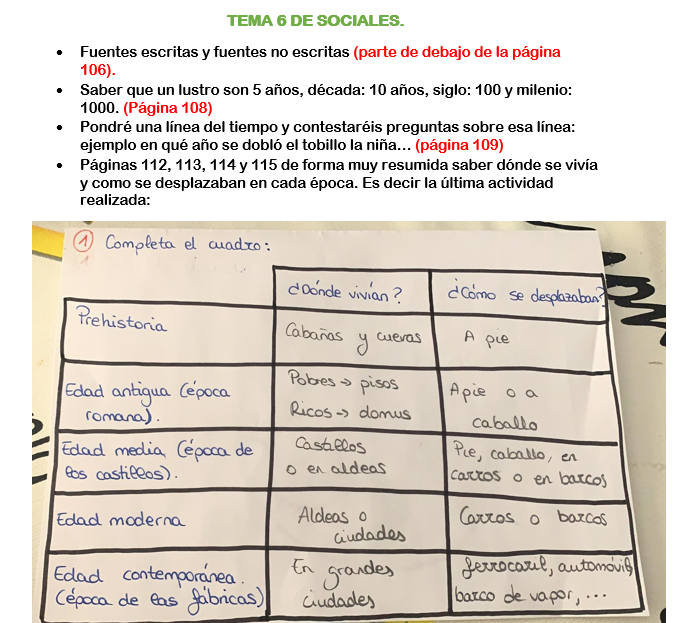 TEMA 6 DE SOCIALES.
• Fuentes escritas y fuentes no escritas (parte de debajo de la página
106).
• Saber que un lustro son 5 años, década: 10 años, siglo: 100 y milenio:
1000. (Página 108)
• Pondré una línea del tiempo y contestaréis preguntas sobre esa línea:
ejemplo en qué año se dobló el tobillo la niña... (página 109)
• Páginas 112, 113, 114 y 115 de forma muy resumida saber dónde se vivía
y como se desplazaban en cada época. Es decir la última actividad
realizada:
1 Completa el cuadro:
1
¿Dónde vivían? ¿Cómo se desplazaban?
Prehistoria Cabañas y cuevas A pie
Edad antigua (época Pobres → pisos Apie o a
romana). Ricos → domus caballo
Edad media (época de Castillos Pie, caballo, en
los castillos). o en aldeas carros o en barcos
Edad moderna Aldeas o Carros o barcos
ciudades
Edad contemporánea. En grandes ferrocaril, automóvil,
(época de las fábricas) ciudades barco de vapor, ...